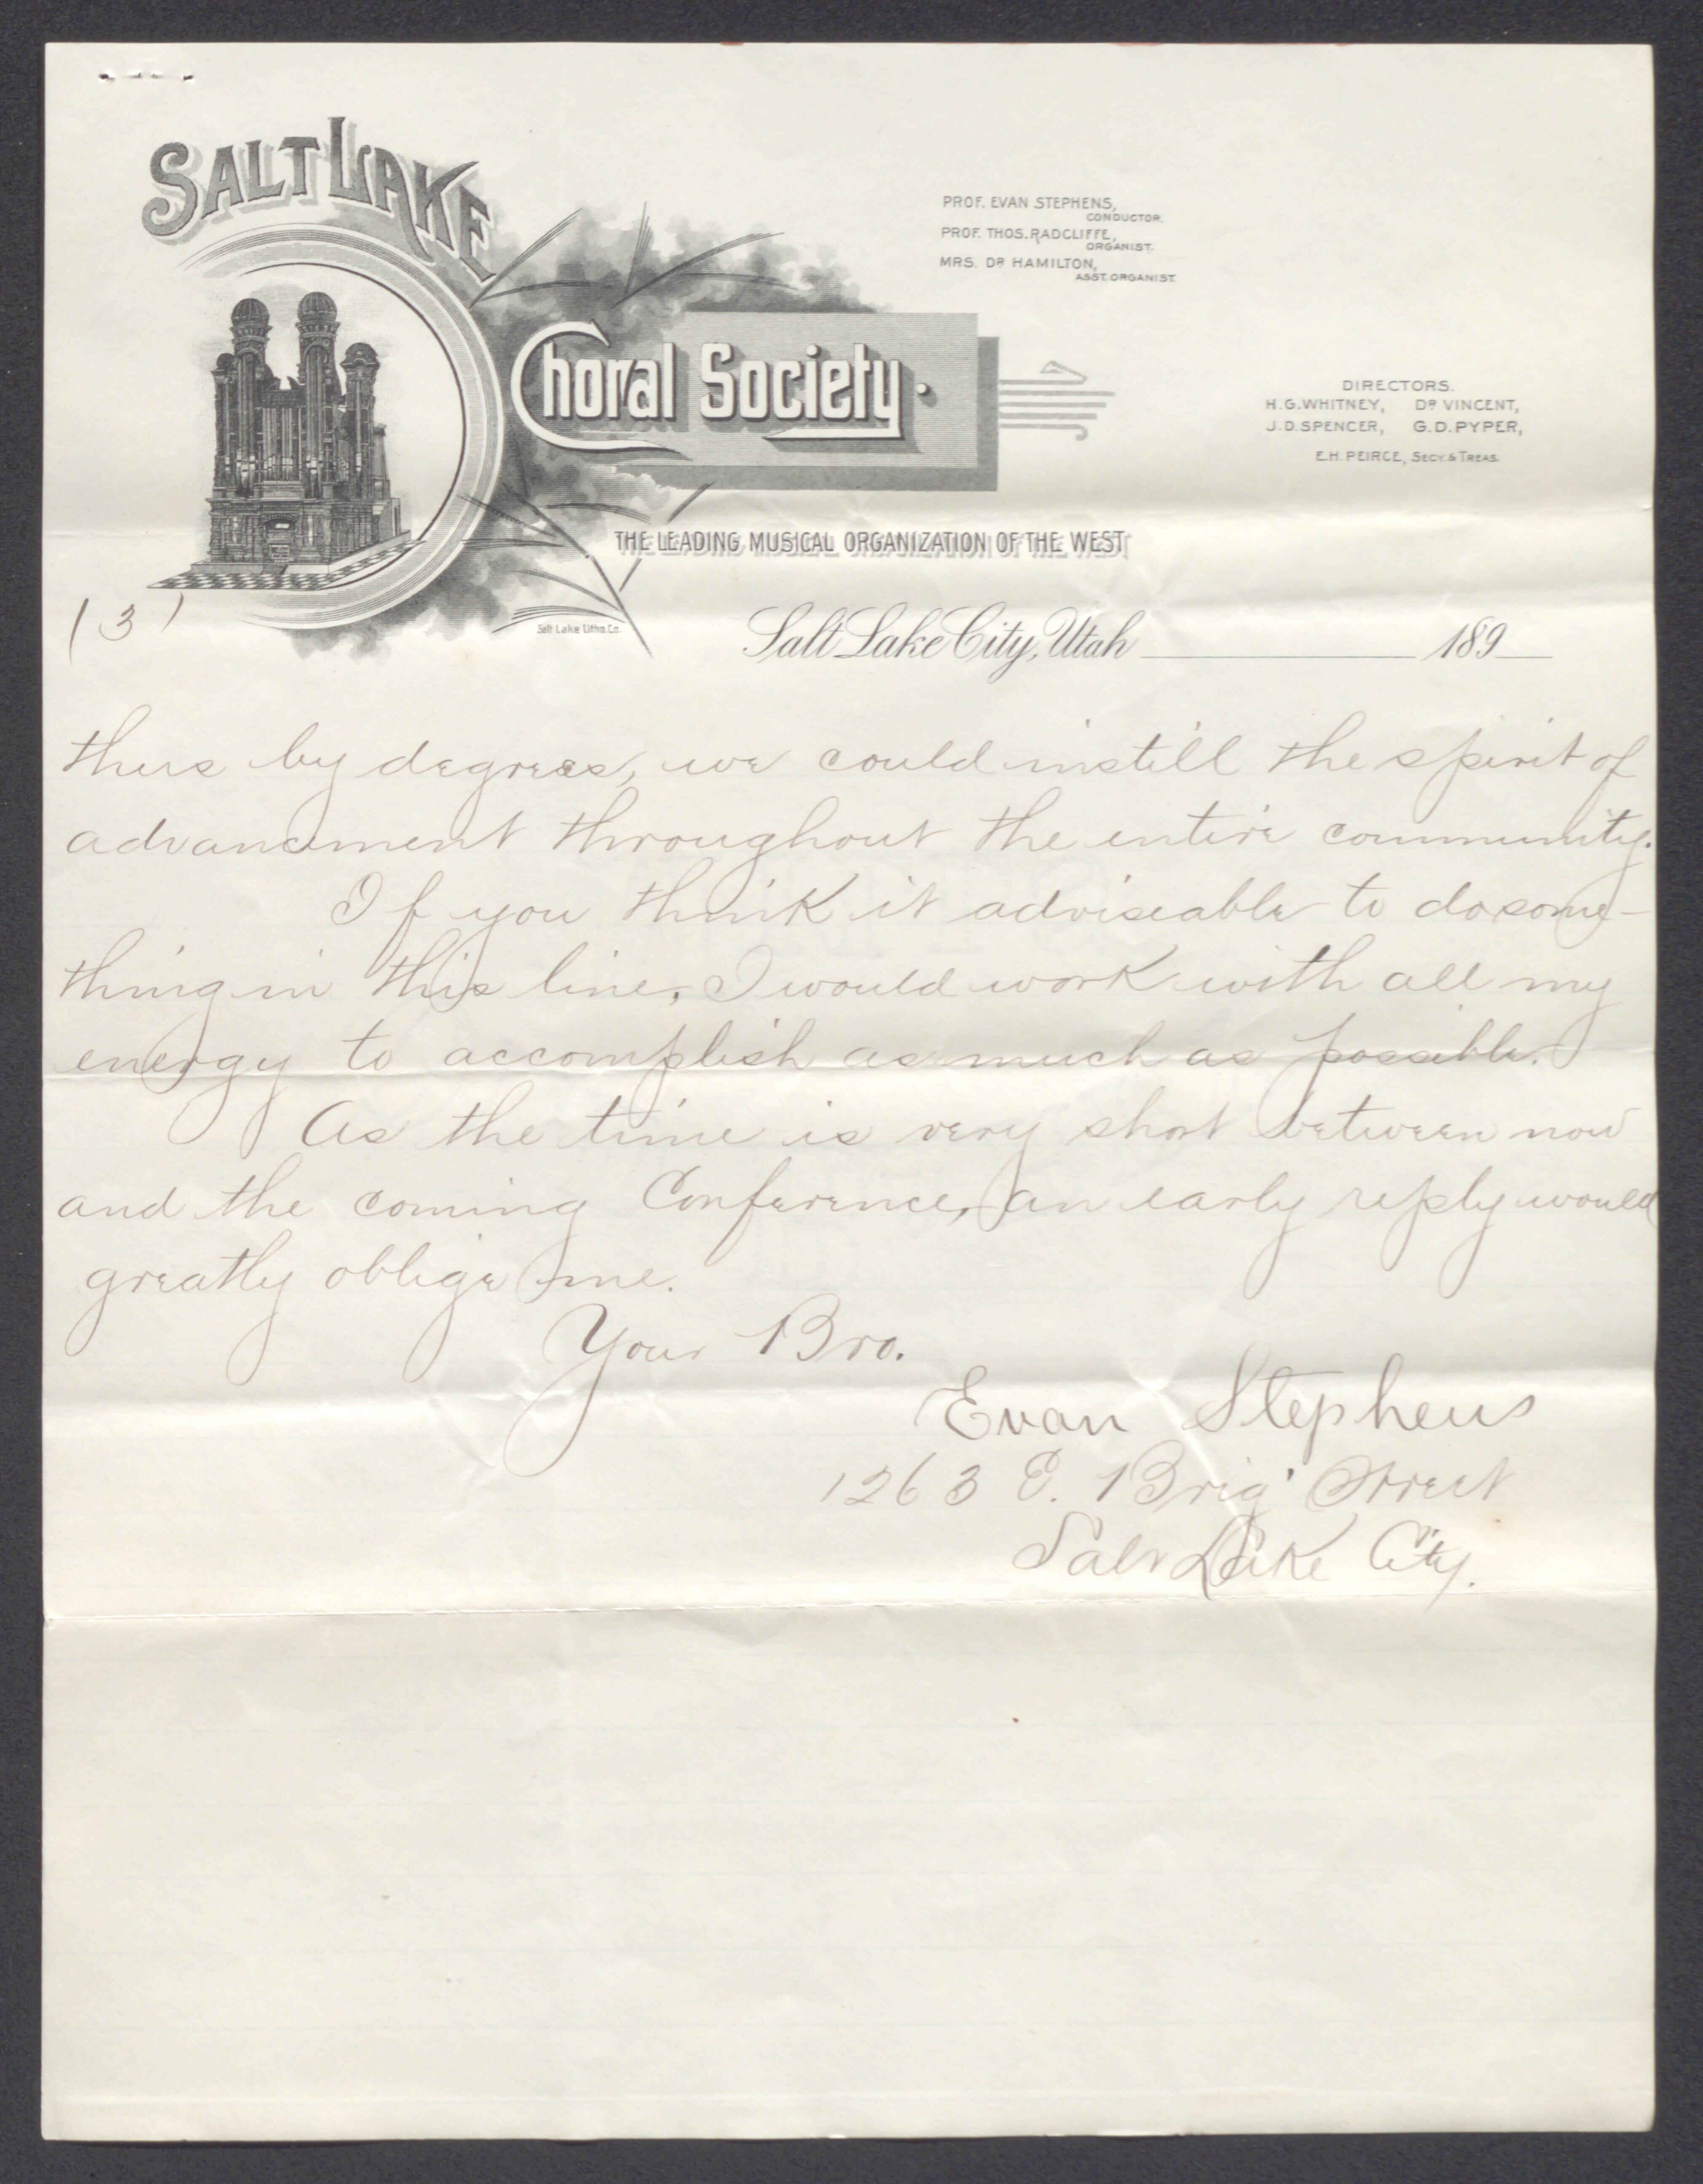 SALT LAKE
Choral Society.
PROF. EVAN STEPHENS,
CONDUCTOR.
PROF. THOS. RADCLIFFE,
ORGANIST.
MRS. DR. HAMILTON,
ASST. ORGANIST.
DIRECTORS.
H.G. WHITNEY, DR. VINCENT,
J.D. SPENCER, G.D. PYPER,
E.H. PEIRCE, SECY. & TREAS.
THE LEADING MUSICAL ORGANIZATION OF THE WEST
Salt Lake Litho. Co.
(3)
Salt Lake City, Utah 189
thus by degrees, we could instill the spirit of
advancement throughout the entire community.
If you think it adviseable to do some-
thing in this line, I would work with all my
energy to accomplish as much as possible.
As the time is very short between now
and the coming Conference, an early reply would
greatly oblige me.
Your Bro.
Evan Stephens
1263 E. Brig' Street
Salt Lake City.